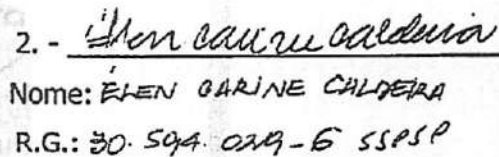 2. - Élen Carine Caldeira
Nome: ÉLEN CARINE CALDEIRA
R.G.: 30.594.029-6 SSPSP